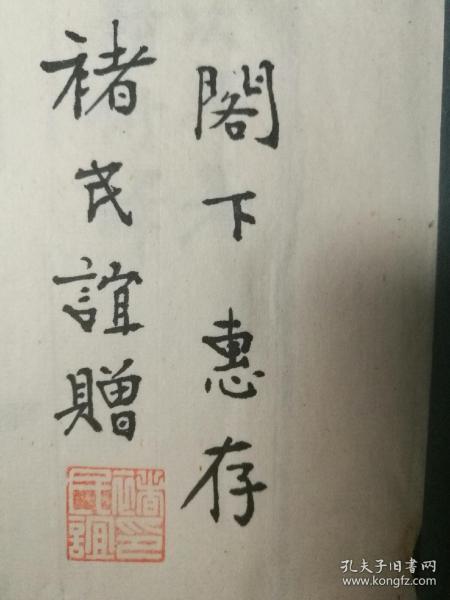 閣下惠存
褚民誼贈
褚印
民誼
孔夫子旧书网
www.kongfz.com